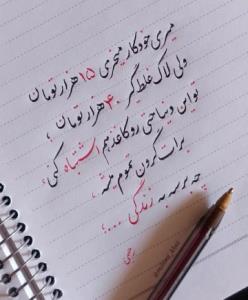 میری خودکار میخری ۱۵ هزار تومان
ولی لاک غلط گیر ۴۰ هزار تومان ،
تو این دنیا حتی رو کاغذ هم اشتباه کنی ،
برات گرون تموم میشه ،
چه برسه به زندگی ...؛